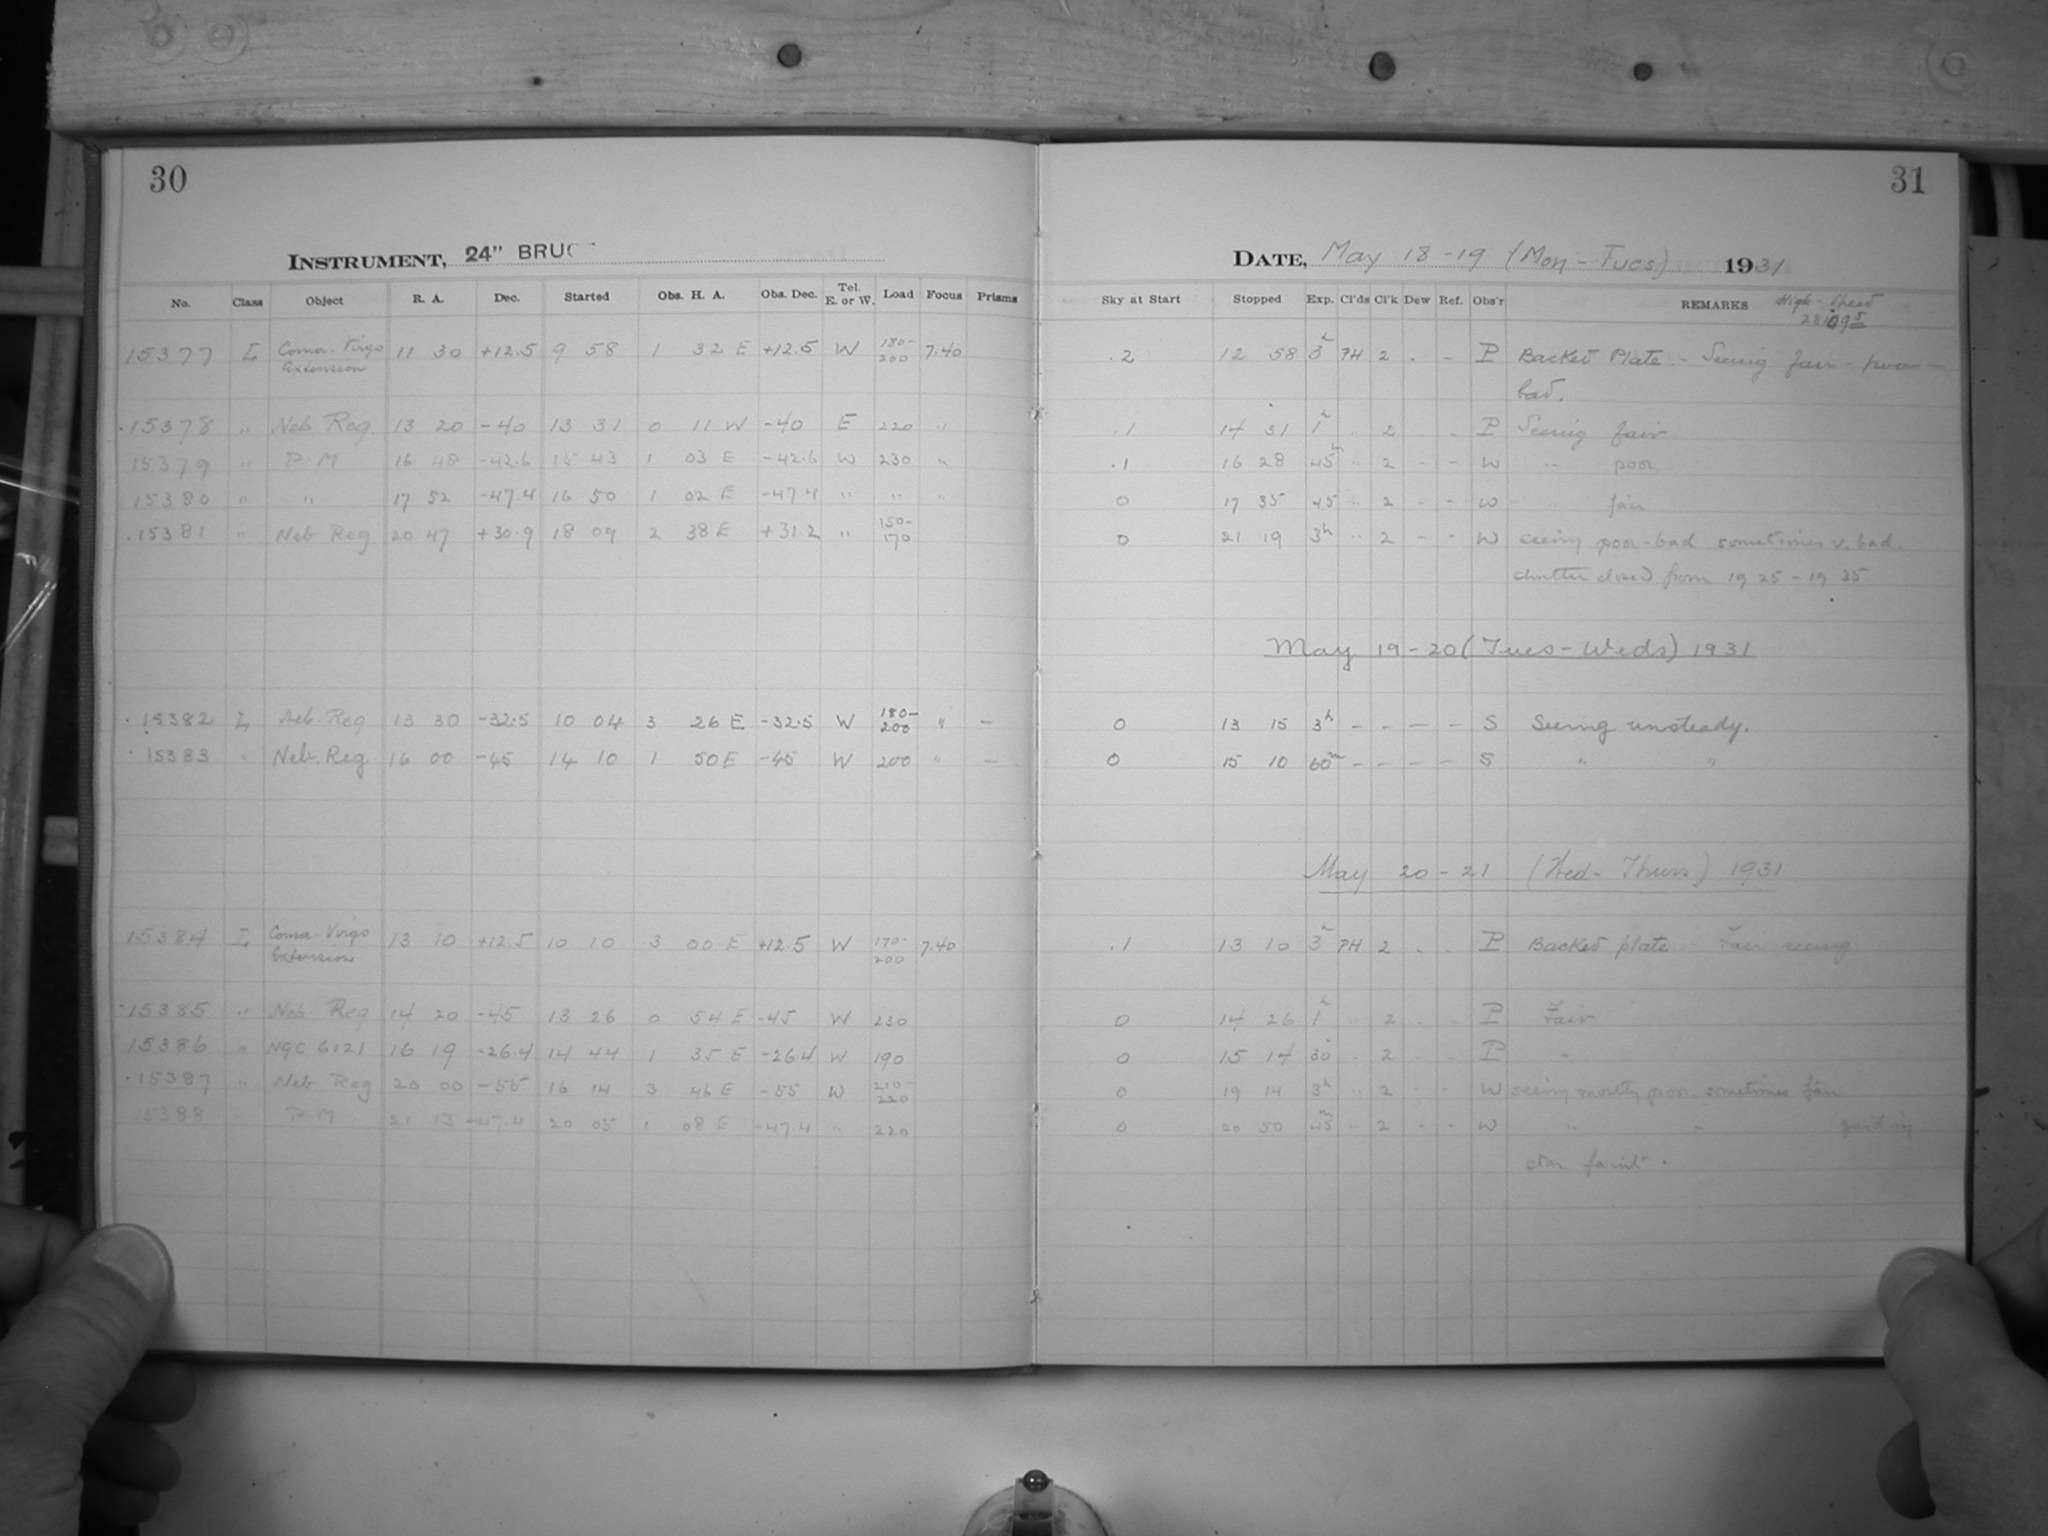 30
INSTRUMENT, 24" BRUC
No. Class Object R. A. Dec. Started Obs. H. A. Obs. Dec. Tel. E. or W. Load Focus Prisms
15377 L Coma-Virgo Extension 11 30 +12.5 9 58 1 32 E +12.5 W 180-200 7.40
15378 " Neb Reg 13 20 -40 13 31 0 11 W -40 E 220 "
15379 " P.M 16 48 -42.6 15 43 1 03 E -42.6 W 230 "
15380 " " 17 52 -47.4 16 50 1 02 E -47.4 " " "
15381 " Neb Reg 20 47 +30.9 18 09 2 38 E +31.2 " 150-170
15382 L Neb. Reg 13 30 -32.5 10 04 3 26 E -32.5 W 180-200 " -
15383 " Neb. Reg 16 00 -45 14 10 1 50 E -45 W 200 " -
15384 L Coma-Virgo Extension 13 10 +12.5 10 10 3 00 E +12.5 W 170-200 7.40
15385 " Neb Reg 14 20 -45 13 26 0 54 E -45 W 230
15386 " NGC 6121 16 19 -26.4 14 44 1 35 E -26.4 W 190
15387 " Neb Reg 20 00 -55 16 14 3 46 E -55 W 210-220
15388 " P.M 21 13 -47.4 20 05 1 08 E -47.4 " 220
31
DATE, May 18-19 (Mon-Tues) 1931
Sky at Start Stopped Exp. Cl'ds Cl'k Dew Ref. Obs'r REMARKS High-Speed
.2 12 58 3h PH 2 - - P Backed Plate - Seeing fair - poor -
bad.
.1 14 31 1h " 2 - - P Seeing fair
.1 16 28 45m " 2 - - W " poor
0 17 35 45 " 2 - - W " fair
0 21 19 3h " 2 - - W seeing poor-bad sometimes v. bad.
shutter closed from 19 25 - 19 35
May 19-20 (Tues-Weds) 1931
0 13 15 3h - - - - S Seeing unsteady.
0 15 10 60m - - - - S " "
May 20-21 (Wed-Thurs) 1931
.1 13 10 3h PH 2 - - P Backed plate - Fair seeing
0 14 26 1h " 2 - - P Fair
0 15 14 30 " 2 - - P "
0 19 14 3h " 2 - - W seeing mostly poor sometimes fair
0 20 50 45m " 2 - - W " " guiding
star faint.